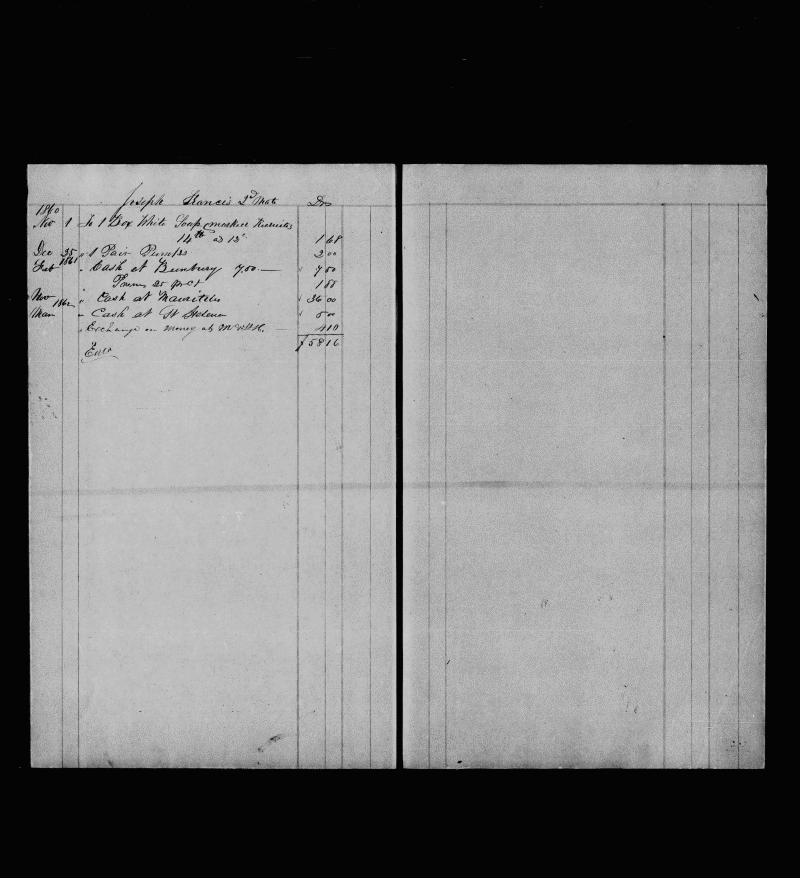 Joseph Francis 2d Mate Drs
1860
Nov 1 To 1 Box White Soap marked
14 lb @ 12c 1 68
Dec 25 " 1 Pair Pumps 2 00
1861
Feb " Cash at Bunbury 7.00 — 7 00
25 pr Ct 1 55
Nov " Cash at Mauritius 36 00
1862
Mar " Cash at St Helena 5 00
" Exchange on money at — 4 10
$ 58 16